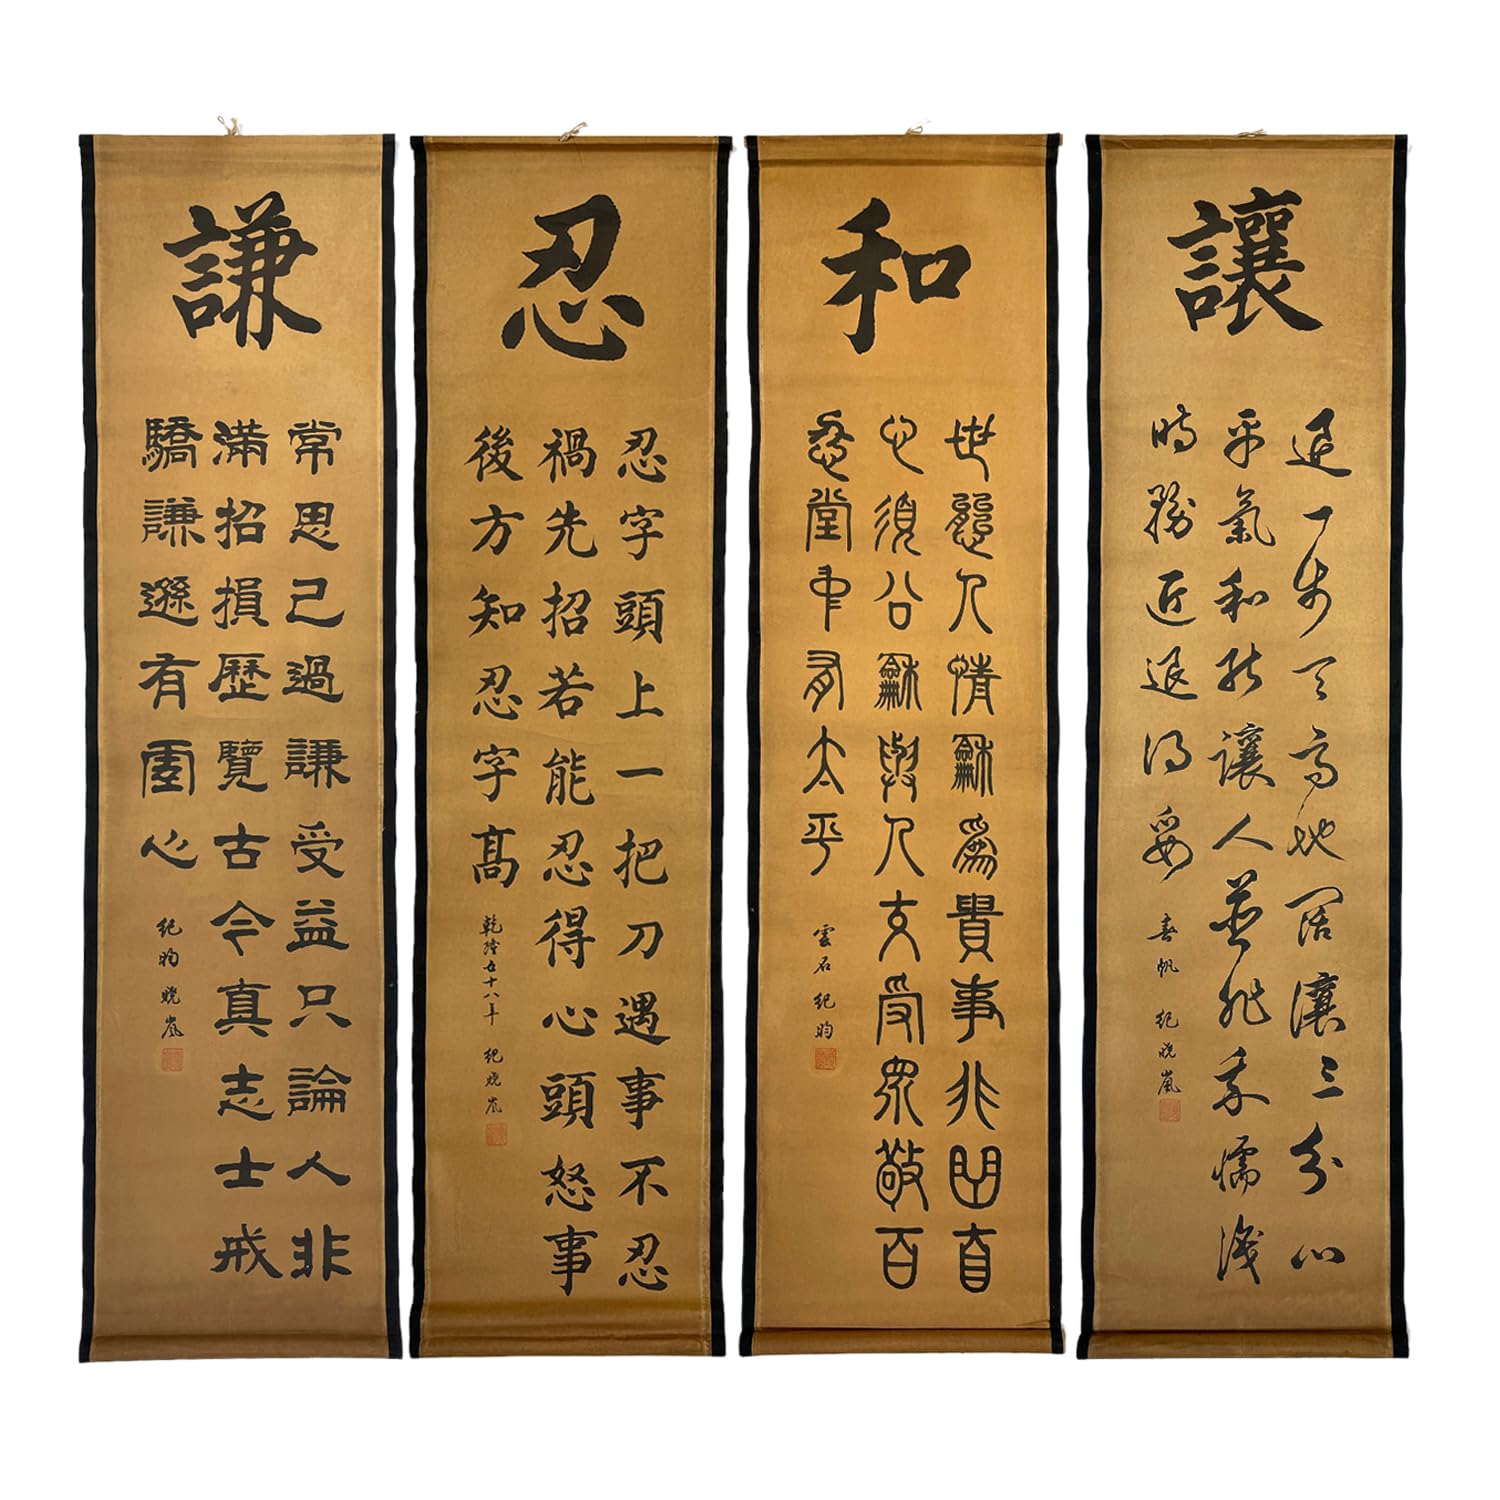 讓
退一步天高地闊讓三分心
平氣和能讓人並非我懦識
時務近退得妥
春帆 紀曉嵐
和
世態人情龢為貴事非曲直
心須公龢與人友受眾敬百
忍堂中有太平
雲石 紀昀
忍
忍字頭上一把刀遇事不忍
禍先招若能忍得心頭怒事
後方知忍字高
乾隆五十八年 紀曉嵐
謙
常思己過謙受益只論人非
滿招損歷覽古今真志士戒
驕謙遜有心
紀昀 曉嵐